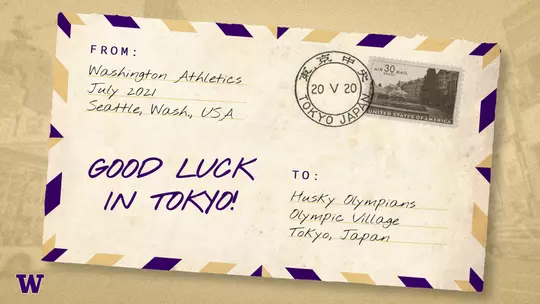 FROM:
Washington Athletics
July 2021
Seattle, Wash., USA
東京中央
20 V 20
TOKYO JAPAN
AIR 30 MAIL
UNITED STATES OF AMERICA
GOOD LUCK
IN TOKYO!
TO:
Husky Olympians
Olympic Village
Tokyo, Japan
W